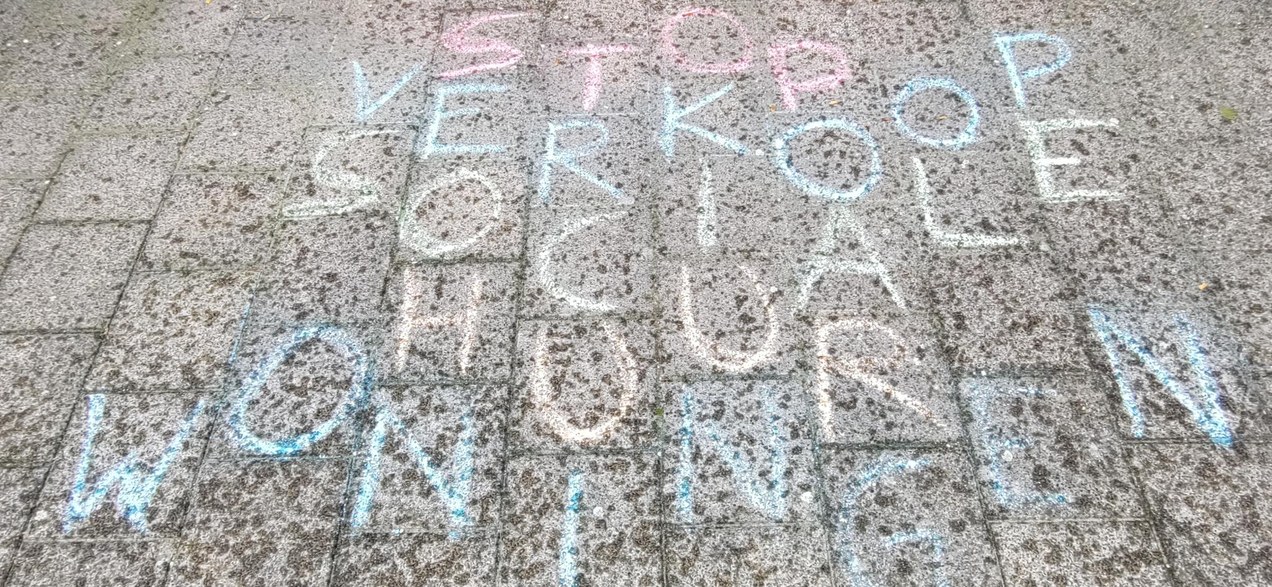 STOP
VERKOOP
SOCIALE
HUUR
WONINGEN